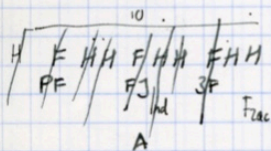 10
H F H H F H H F H H
PF FJ hd JF
A